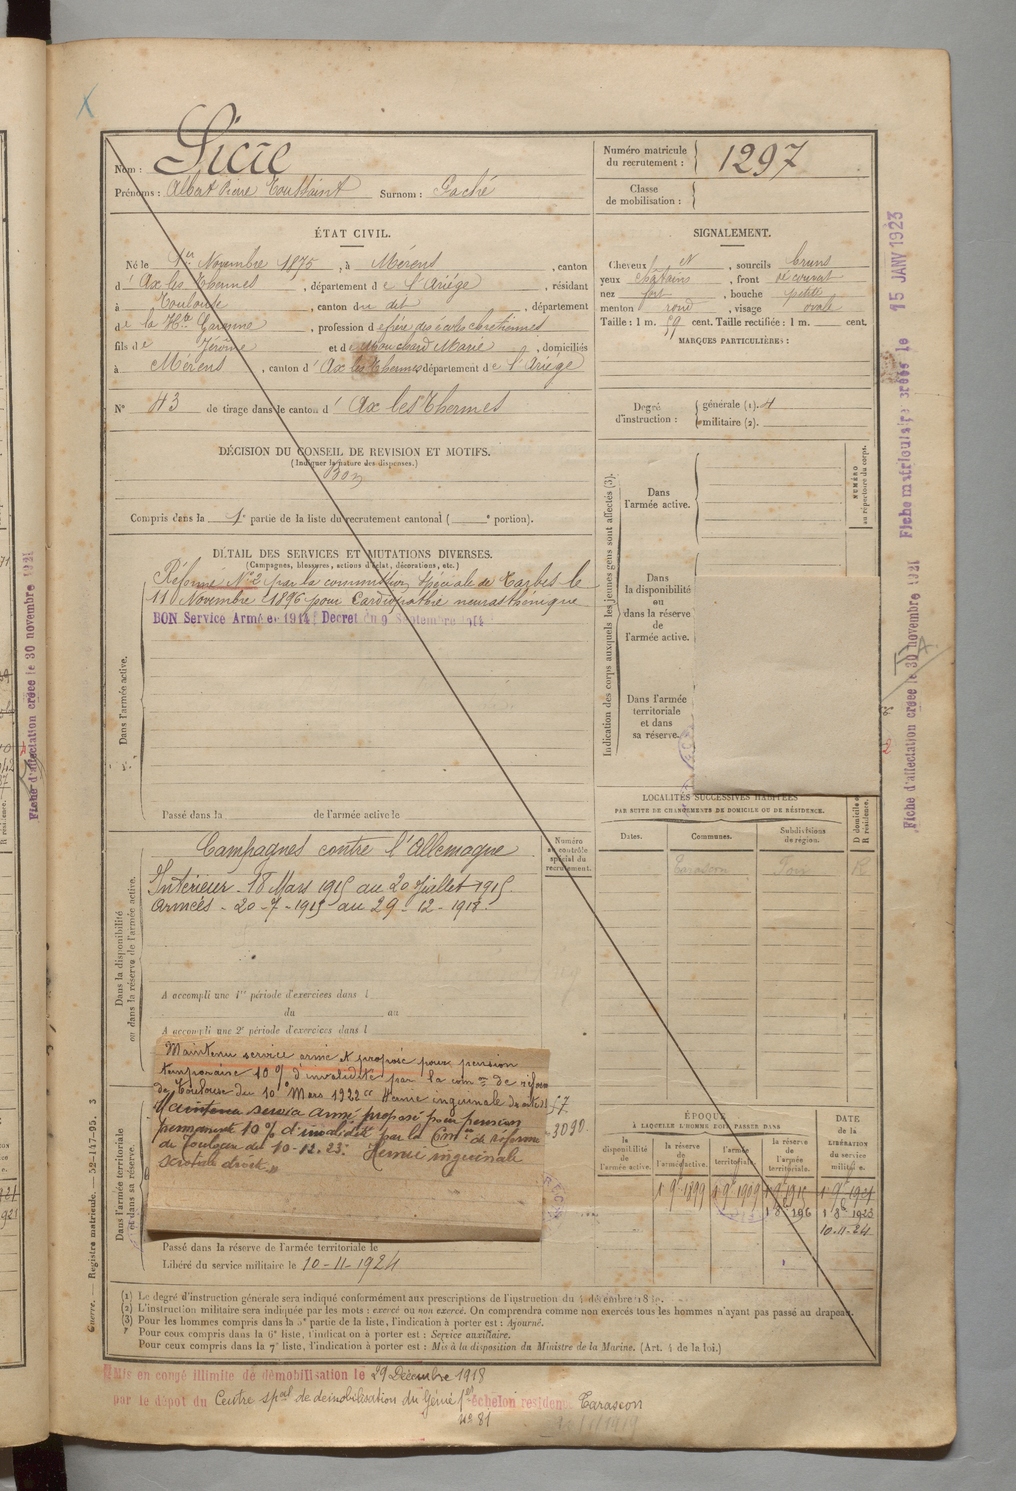 Nom : Sicre
Prénoms : Albert Pierre Toussaint Surnom : Gaché
Numéro matricule du recrutement : 1297
Classe de mobilisation :
ÉTAT CIVIL.
Né le 1er Novembre 1875, à Mérens, canton
d'Ax les Thermes, département de l'Ariége, résidant
à Toulouse, canton du dit, département
de la Hte Garonne, profession d frère des écoles chrétiennes
fils de Jérôme et de Mouchard Marie, domiciliés
à Mérens, canton d'Ax les Thermes département de l'Ariége
N° 43 de tirage dans le canton d'Ax les Thermes
SIGNALEMENT.
Cheveux et, sourcils bruns
yeux chatains, front découvert
nez fort, bouche petite
menton rond, visage ovale
Taille : 1 m. 59 cent. Taille rectifiée : 1 m. cent.
MARQUES PARTICULIÈRES :
Degré d'instruction : générale (1). 4
militaire (2).
DÉCISION DU CONSEIL DE REVISION ET MOTIFS.
(Indiquer la nature des dispenses.)
Bon
Compris dans la 1e partie de la liste du recrutement cantonal ( e portion).
DÉTAIL DES SERVICES ET MUTATIONS DIVERSES.
(Campagnes, blessures, actions d'éclat, décorations, etc.)
Réformé N°2 par la commission spéciale de Tarbes le
11 Novembre 1896 pour Cardiopathie neurasthénique
BON Service Armée 1914 Decret du 9 Septembre 1914
Dans l'armée active.
Passé dans la de l'armée active le
Indication des corps auxquels les jeunes gens sont affectés (3).
Dans l'armée active.
NUMÉRO au répertoire du corps.
Dans la disponibilité ou dans la réserve de l'armée active.
Dans l'armée territoriale et dans sa réserve.
Campagnes contre l'Allemagne
Intérieur - 18 Mars 1915 au 20 Juillet 1915
Armées - 20-7-1915 au 29-12-1918.
Numéro au contrôle spécial du recrutement.
Dans la disponibilité ou dans la réserve de l'armée active.
A accompli une 1re période d'exercices dans l
du au
A accompli une 2e période d'exercices dans l
Maintenu service armé et proposé pour pension
temporaire 10% d'invalidité par la comon de réforme
de Toulouse du 10 Mars 1922 Hernie inguinale droite
Maintenu service armé proposé pour pension
permanente 10% d'invalidité par la Comon de Réforme
de Toulouse du 10-12-23. Hernie inguinale
scrotale droite
Dans l'armée territoriale et dans sa réserve.
Passé dans la réserve de l'armée territoriale le
Libéré du service militaire le 10-11-1924
LOCALITÉS SUCCESSIVES HABITÉES
PAR SUITE DE CHANGEMENTS DE DOMICILE OU DE RÉSIDENCE.
Dates. Communes. Subdivisions de région. D domicile R résidence.
Tarascon Foix R
ÉPOQUE
À LAQUELLE L'HOMME DOIT PASSER DANS
la disponibilité de l'armée active.
la réserve de l'armée active.
l'armée territoriale.
la réserve de l'armée territoriale.
DATE de la LIBÉRATION du service militaire.
1 9bre 1899 1 9bre 1909 1 9bre 1915 1 9bre 1921
10-11-24
(1) Le degré d'instruction générale sera indiqué conformément aux prescriptions de l'instruction du 4 décembre 18
(2) L'instruction militaire sera indiquée par les mots : exercé ou non exercé. On comprendra comme non exercés tous les hommes n'ayant pas passé au drapeau.
(3) Pour les hommes compris dans la 5e partie de la liste, l'indication à porter est : Ajourné.
Pour ceux compris dans la 6e liste, l'indication à porter est : Service auxiliaire.
Pour ceux compris dans la 7e liste, l'indication à porter est : Mis à la disposition du Ministre de la Marine. (Art. 4 de la loi.)
Mis en congé illimité de démobilisation le 29 Décembre 1918
par le dépot du Centre spal de démobilisation du Génie 1er échelon résidence Tarascon
n° 81
Guerre. — Registre matricule. — 52-147-95. 3
Fiche d'affectation créée le 30 novembre 1921
Fiche matriculaire créée le 15 JANV 1923
Fiche d'affectation créée le 30 novembre 1921